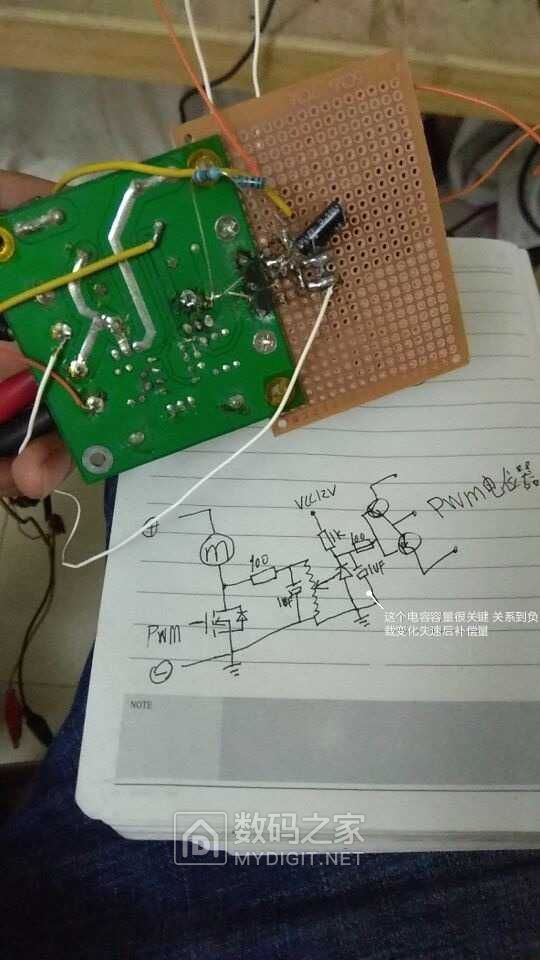 VCC12V
PWM电位器
1K
100
100
1UF
1UF
m
PWM
这个电容容量很关键 关系到负
载变化失速后补偿量
NOTE
数码之家
MYDIGIT.NET